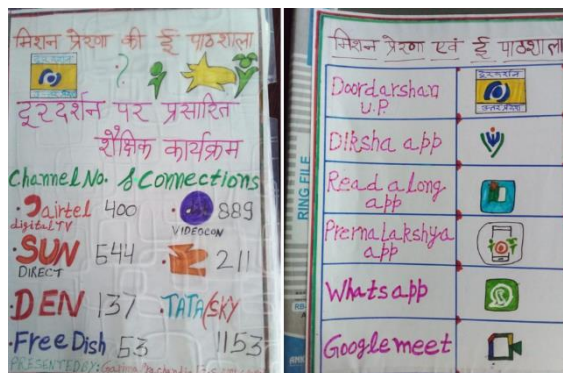 मिशन प्रेरणा की ई पाठशाला
दूरदर्शन पर प्रसारित
शैक्षिक कार्यक्रम
Channel No. & Connections
airtel 400
digital TV
889
VIDEOCON
SUN 544
DIRECT
211
DEN 137
TATA/SKY
Free Dish 53
1153
PRESENTED BY:
मिशन प्रेरणा एवं ई पाठशाला
Doordarshan
U.P.
दूरदर्शन
उत्तर प्रदेश
Diksha app
Read along
app
Prerna Lakshya
app
Whats app
Google meet
RING FILE